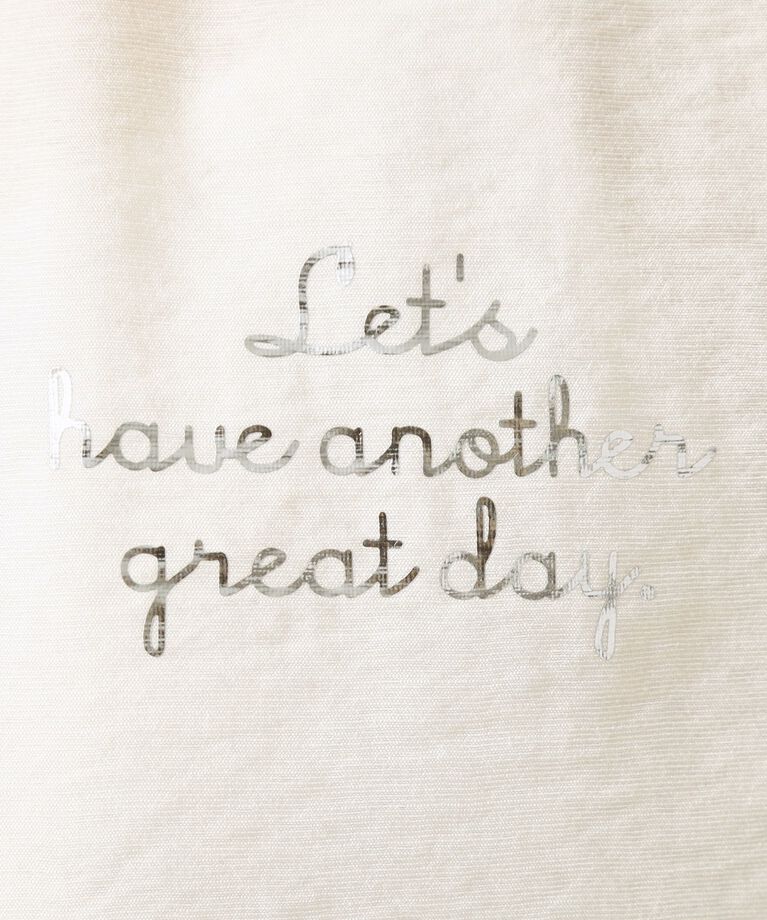 Let's
have another
great day.